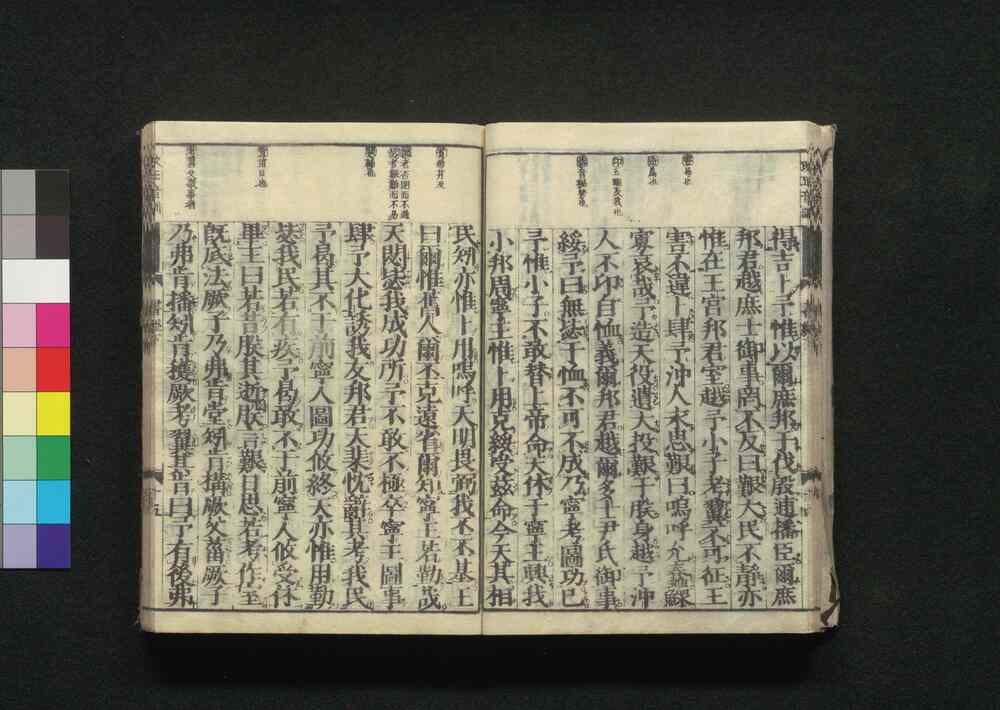 得吉卜予惟以爾庶邦于伐殷逋播臣爾庶
邦君越庶士御事罔不反曰艱大民不靜亦
惟在王宮邦君室越予小子考翼不可征王
害不違卜肆予沖人永思艱曰嗚呼允蠢鰥
寡哀哉予造天役遺大投艱于朕身越予沖
人不卬自恤義爾邦君越爾多士尹氏御事
綏予曰無毖于恤不可不成乃寧考圖功已
予惟小子不敢替上帝命天休于寧王興我
小邦周寧王惟卜用克綏受茲命今天其相
閟者否閉而不通
毖者艱難而不易
民矧亦惟卜用嗚呼天明畏弼我丕丕基王
曰爾惟舊人爾丕克遠省爾知寧王若勤哉
天閟毖我成功所予不敢不極卒寧王圖事
肆予大化誘我友邦君天棐忱辭其考我民
予曷其不于前寧人圖功攸終天亦惟用勤
毖我民若有疾予曷敢不于前寧人攸受休
畢王曰若昔朕其逝朕言艱日思若考作室
既底法厥子乃弗肯堂矧肯構厥父菑厥子
乃弗肯播矧肯穫厥考翼其肯曰予有後弗